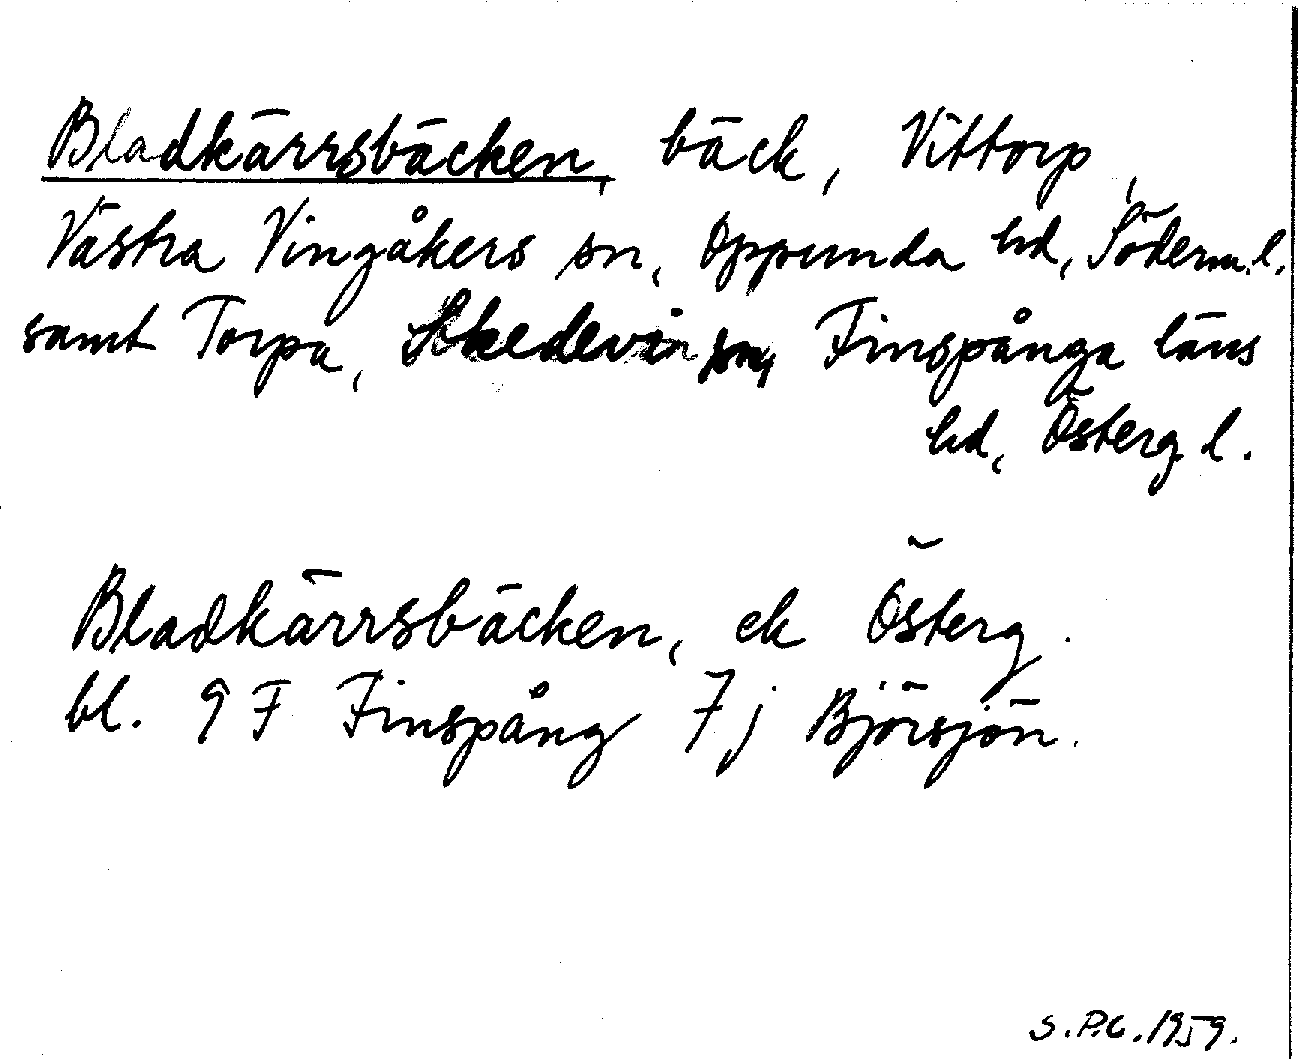 Bladkärrsbäcken, bäck, Vittorp,
Västra Vingåkers sn, Oppunda hd, Söderm. l.
samt Torpa, Skedevi sn, Finspånga läns
hd, Österg. l.
Bladkärrsbäcken, ek Österg.
bl. 9 F Finspång 7 j Björsjön.
S.P.C. 1959.